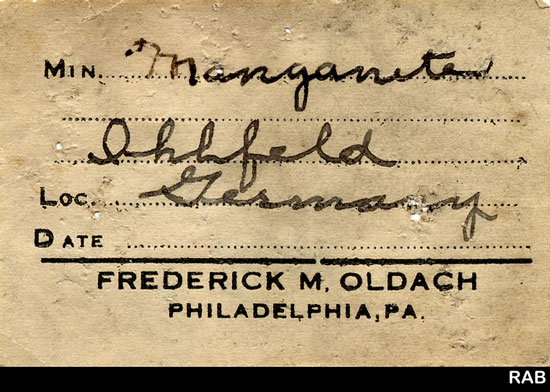 MIN. Manganite
LOC. Germany
DATE
FREDERICK M. OLDACH
PHILADELPHIA, PA.
RAB